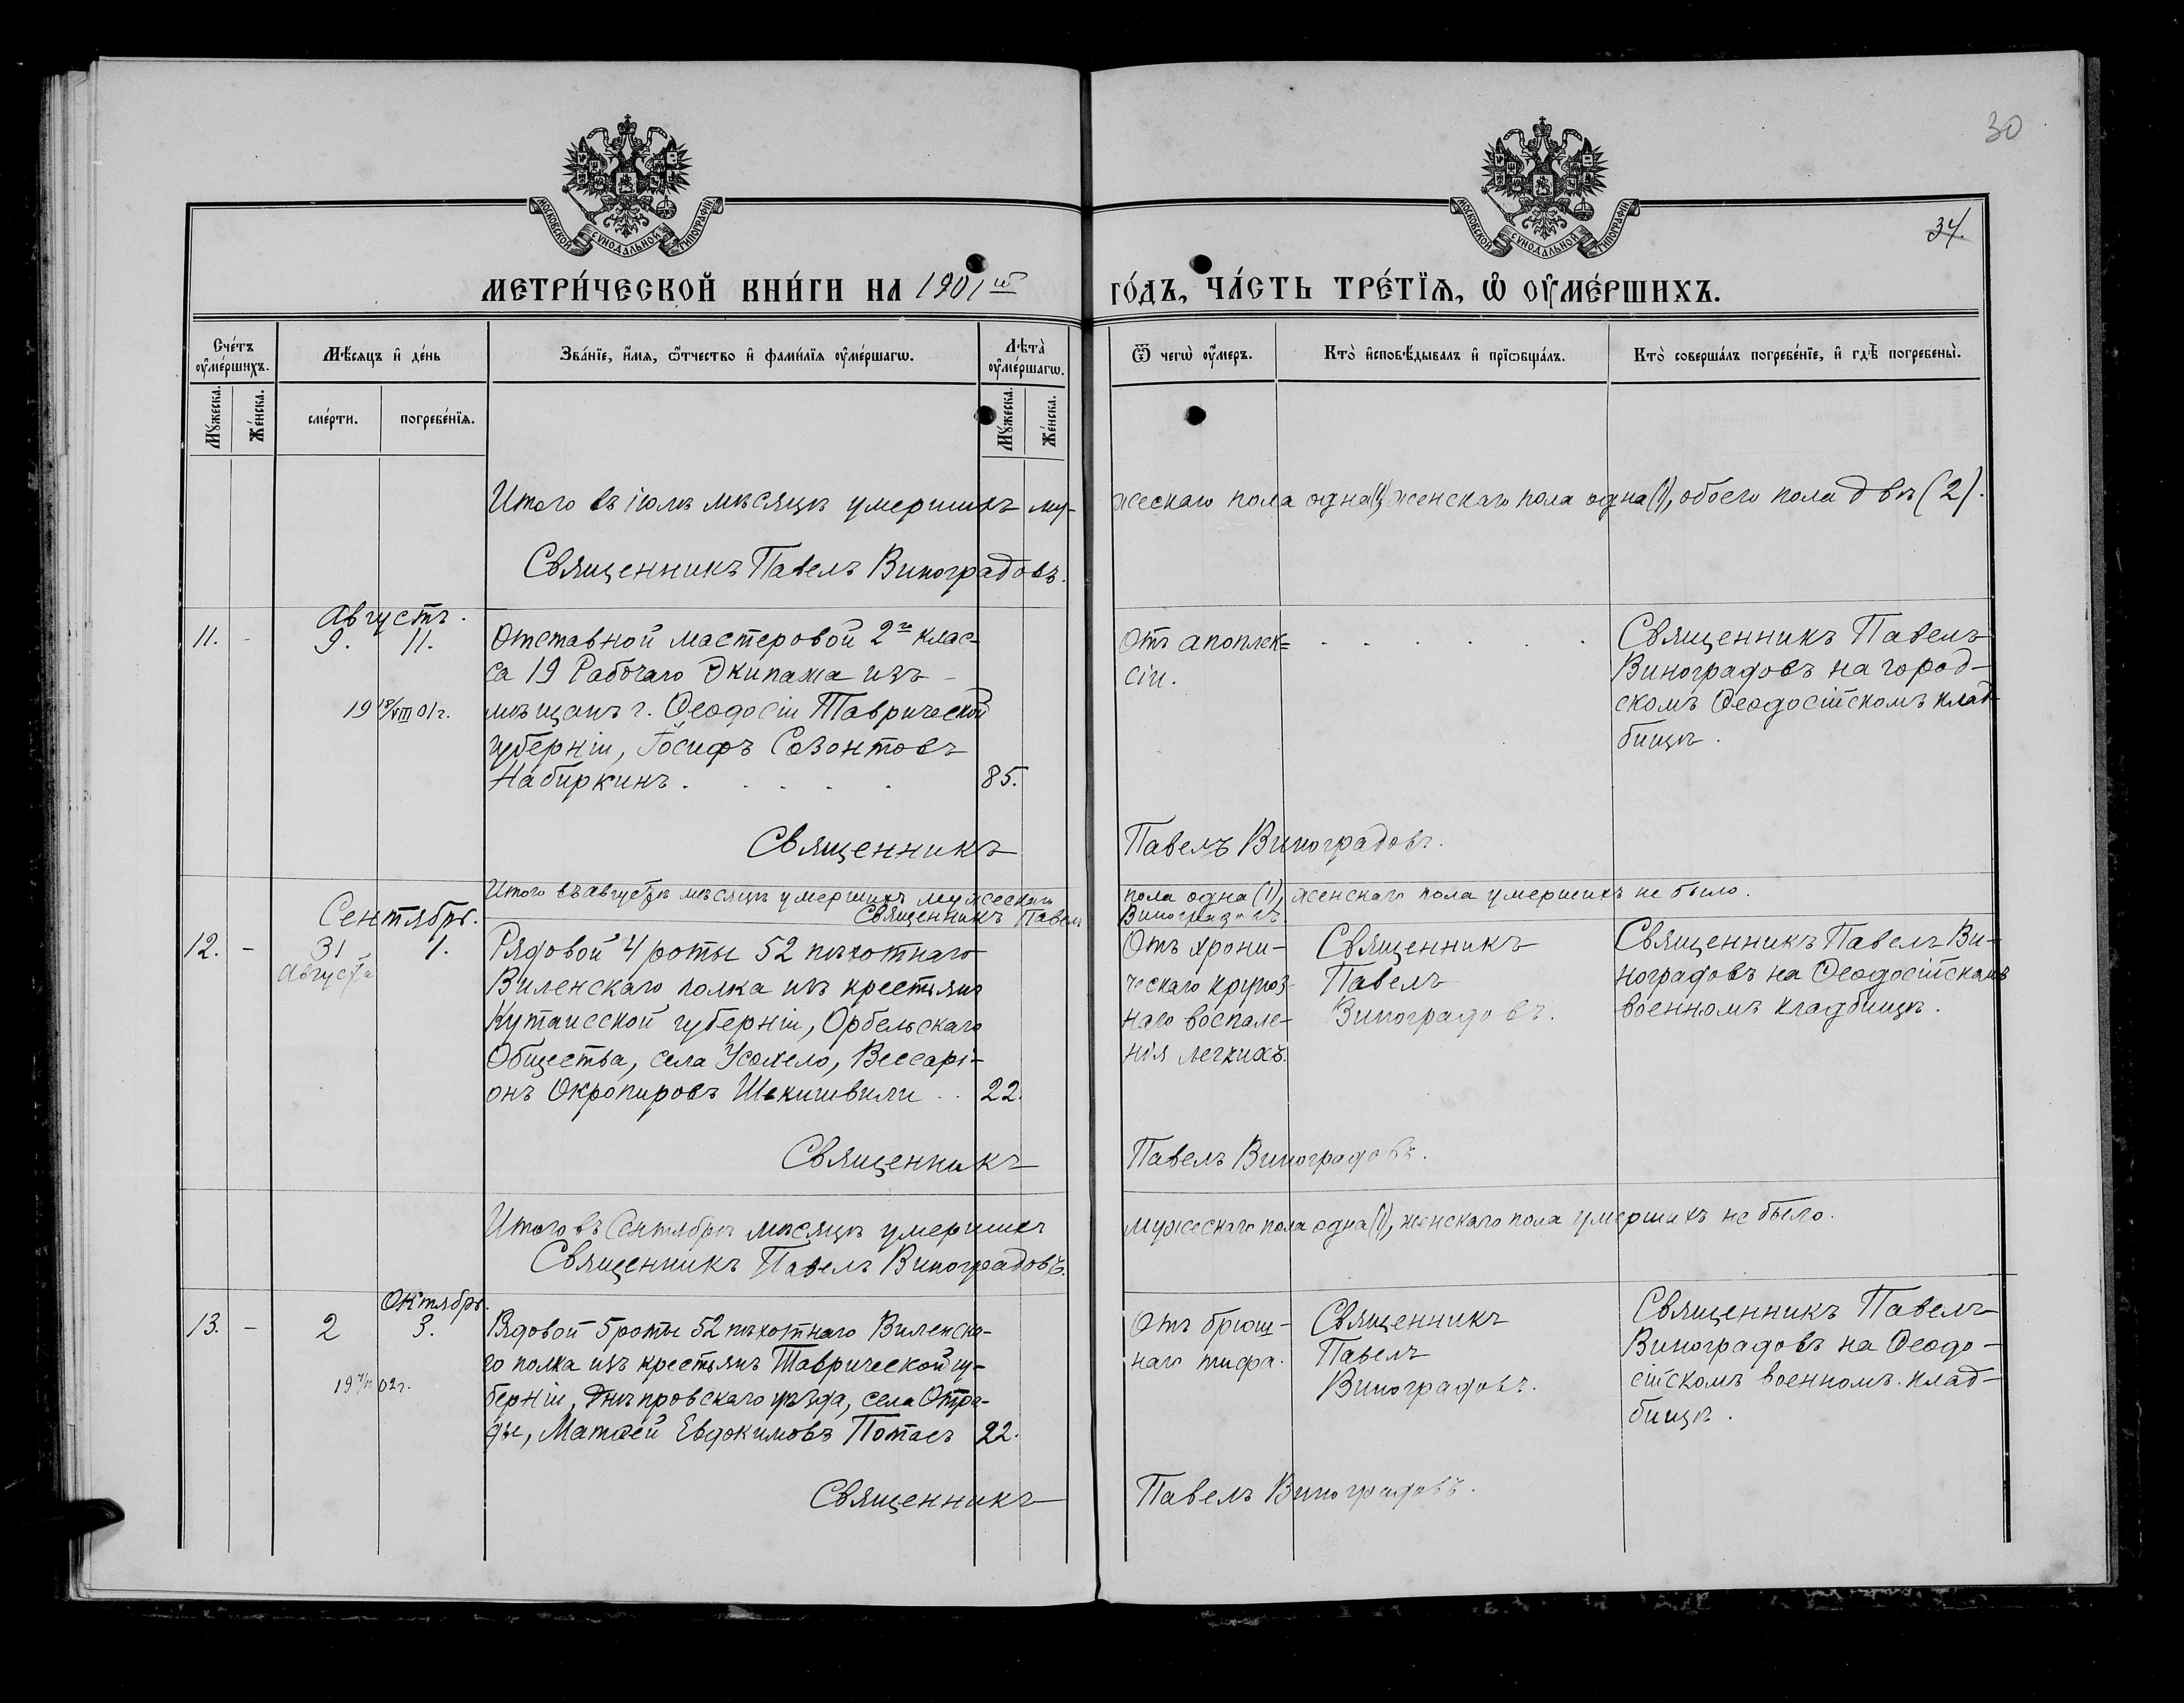 30
34.
МОСКОВСКОЙ СѴНОДАЛЬНОЙ ТИПОГРАФІИ
МОСКОВСКОЙ СѴНОДАЛЬНОЙ ТИПОГРАФІИ
МЕТРИ́ЧЕСКОЙ КНИ́ГИ НА 1901 й ГО́ДЪ, ЧА́СТЬ ТРЕ́ТІѦ, Ѡ ОУ҆МЕ́РШИХЪ.
Сче́тъ оу҆ме́ршихъ.
Мѣ́сѧцъ и҆ де́нь
Зва́нїе, и҆́мѧ, ѻ҆́тчество и҆ фами́лїѧ оу҆ме́ршагѡ.
Лѣ́та оу҆ме́ршагѡ.
Ѿ чегѡ̀ оу҆́меръ.
Кто̀ и҆сповѣ́дывалъ и҆ прїѡбща́лъ.
Кто̀ соверша́лъ погребе́нїе, и҆ гдѣ̀ погребены̀.
Мꙋ́жеска.
Же́нска.
сме́рти.
погребе́нїѧ.
Мꙋ́жеска.
Же́нска.
Итого въ іюлѣ мѣсяцѣ умершихъ му-
жескаго пола одна (1), женскаго пола одна (1), обоего пола двѣ (2).
Священникъ Павелъ Виноградовъ.
Августъ.
11. - 9. 11.
19 18/VIII 01 г.
Отставной мастеровой 2го клас-
са 19 Рабочаго Экипажа изъ
мѣщанъ г. Ѳеодосіи Таврической
губерніи, Іосифъ Созонтовъ
Набиркинъ. 85.
Отъ апоплек=
сіи.
Священникъ Павелъ
Виноградовъ на город-
скомъ Ѳеодосійскомъ клад-
бищѣ.
Священникъ Павелъ Виноградовъ.
Итого въ августѣ мѣсяцѣ умершихъ мужескаго пола одна (1), женскаго пола умершихъ не было.
Священникъ Павелъ Виноградовъ.
Сентябрь.
12. - 31 1.
Августа
Рядовой 4 роты 52 пѣхотнаго
Виленскаго полка изъ крестьянъ
Кутаисской губерніи, Орбельскаго
Общества, села Усахело, Вессарі-
онъ Окропировъ Шекишвили 22.
Отъ хрони-
ческаго крупоз-
наго воспале-
нія легкихъ.
Священникъ
Павелъ
Виноградовъ.
Священникъ Павелъ Ви-
ноградовъ на Ѳеодосійскомъ
военномъ кладбищѣ.
Священникъ Павелъ Виноградовъ.
Итого въ Сентябрѣ мѣсяцѣ умершихъ
мужескаго пола одна (1), женскаго пола умершихъ не было.
Священникъ Павелъ Виноградовъ.
Октябрь.
13. - 2 3.
02 г.
Рядовой 5 роты 52 пѣхотнаго Виленска-
го полка изъ крестьянъ Таврической гу-
берніи, Днѣпровскаго уѣзда, села Отра-
ды, Матѳей Евдокимовъ Потаев 22.
Отъ брюш-
наго тифа.
Священникъ
Павелъ
Виноградовъ.
Священникъ Павелъ
Виноградовъ на Ѳеодо-
сійскомъ военномъ клад-
бищѣ.
Священникъ Павелъ Виноградовъ.